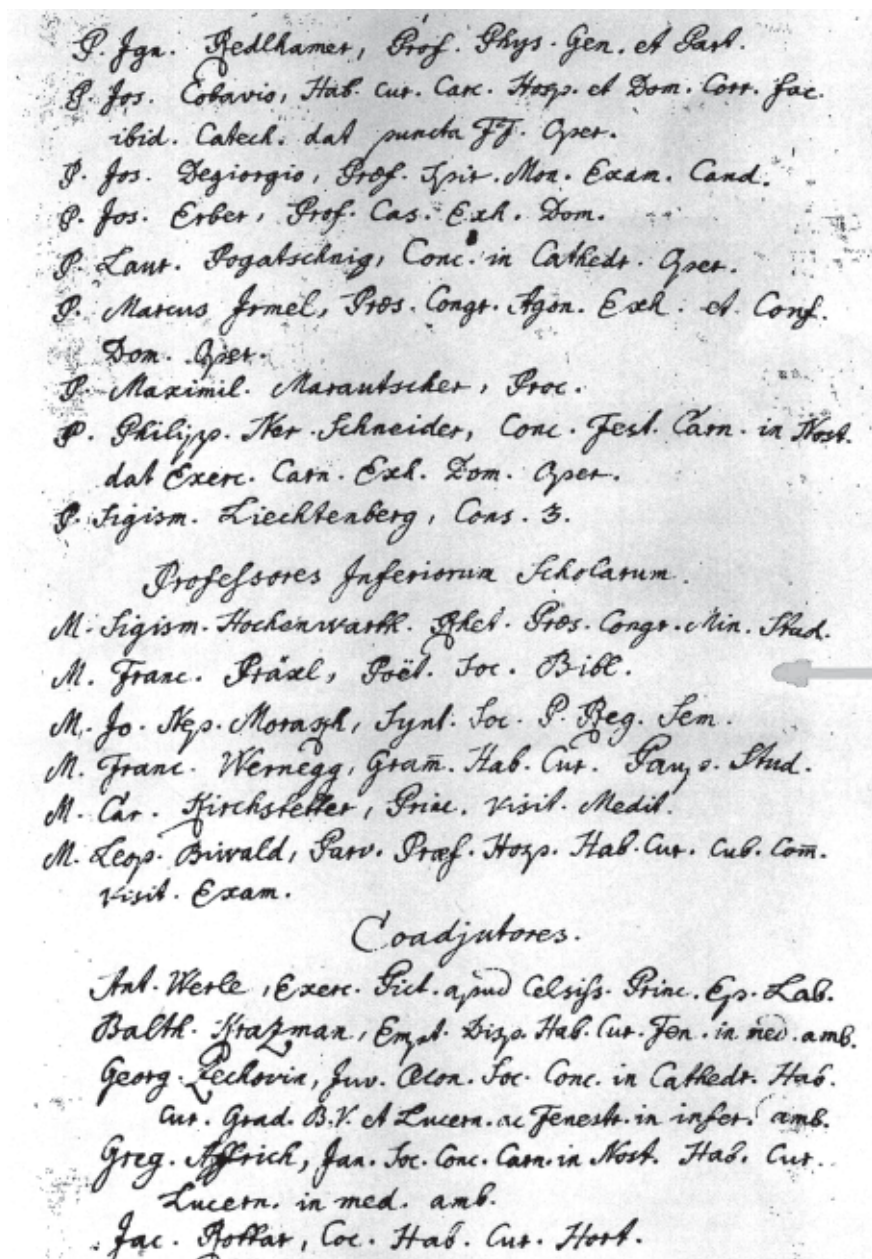 P. Ign. Redlhamer, Prof. Phys. Gen. et Part.
P. Jos. Cobavio, Hab. Cur. Carc. Hosp. et Dom. Corr. fac.
ibid. Catech. dat puncta FF. Oper.
P. Jos. Degiorgio, Præf. Spir. Mon. Exam. Cand.
P. Jos. Erber, Prof. Cas. Exh. Dom.
P. Laur. Pogatschnig, Conc. in Cathedr. Oper.
P. Marcus Irmel, Præs. Congr. Agon. Exh. et Conf.
Dom. Oper.
P. Maximil. Marautscher, Proc.
P. Philipp. Ner. Schneider, Conc. Fest. Carn. in Nost.
dat Exerc. Carn. Exh. Dom. Oper.
P. Sigism. Liechtenberg, Cons. 3.
Professores Inferiorum Scholarum.
M. Sigism. Hochenwarth. Rhet. Præs. Congr. Min. Stud.
M. Franc. Präxl, Poët. Soc. Bibl.
M. Jo. Nep. Morasch, Synt. Soc. P. Reg. Sem.
M. Franc. Wernegg, Gram̄. Hab. Cur. Paup. Stud.
M. Car. Kirchstetter, Princ. Visit. Medit.
M. Leop. Biwald, Parv. Præf. Hosp. Hab. Cur. Cub. Com̄.
Visit. Exam.
Coadjutores.
Ant. Werle, Exerc. Pict. apud Celsiss. Princ. Ep. Lab.
Balth. Krazman, Empt. Disp. Hab. Cur. Fen. in med. amb.
Georg. Zechovin, Juv. Œcon. Soc. Conc. in Cathedr. Hab.
Cur. Grad. B.V. et Lucern. ac Fenestr. in infer. amb.
Greg. Jan. Soc. Conc. Carn. in Nost. Hab. Cur.
Lucern. in med. amb.
Jac. Coc. Hab. Cur. Hort.